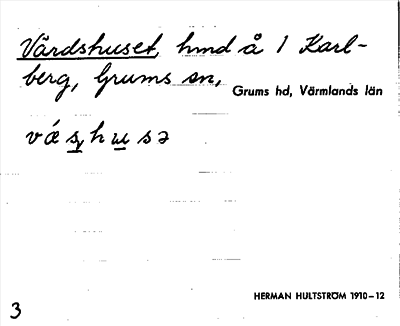 Värdshuset, hmd å 1 Karl-
berg, Grums sn,
Grums hd, Värmlands län
vá̈s̠hu̠sə
HERMAN HULTSTRÖM 1910–12
3